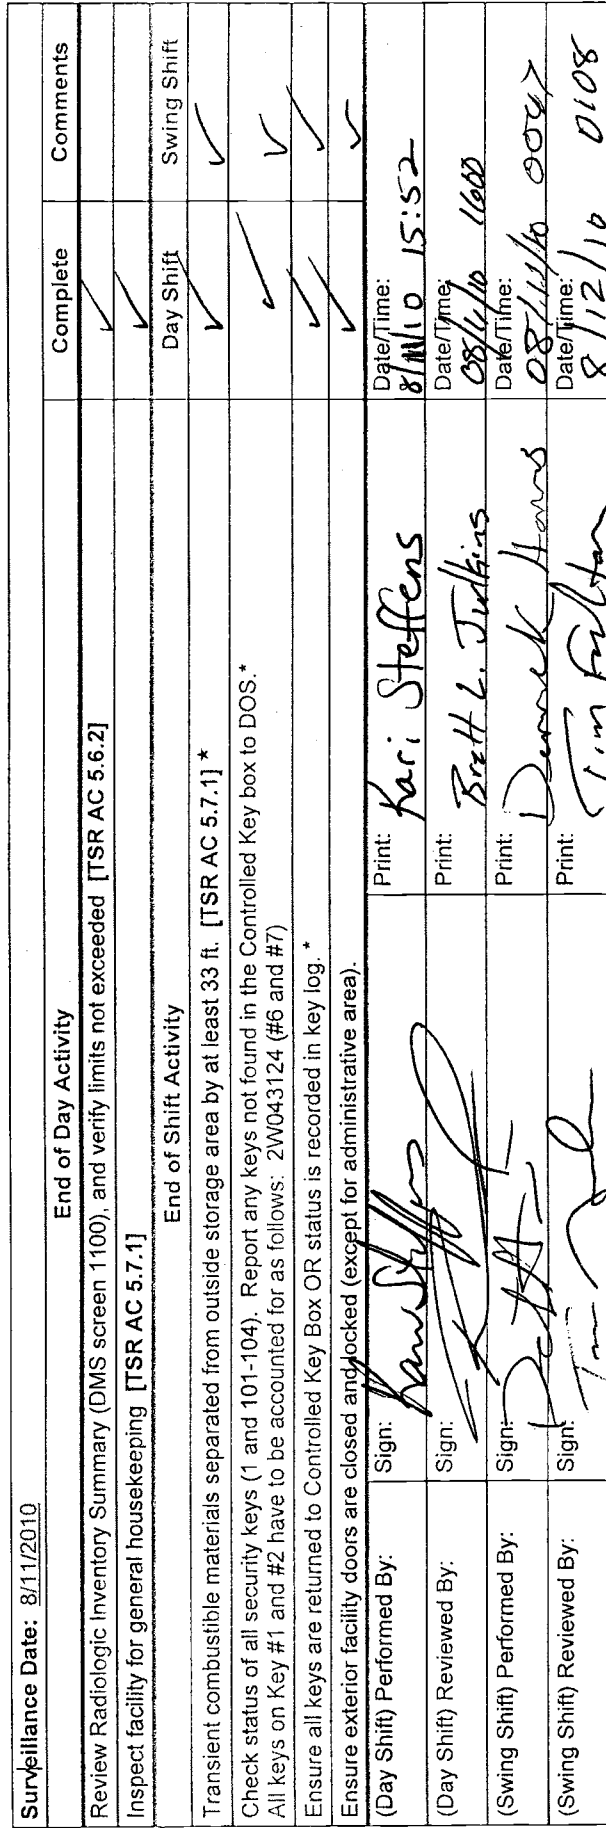 Surveillance Date: 8/11/2010
End of Day Activity Complete Comments
Review Radiologic Inventory Summary (DMS screen 1100), and verify limits not exceeded [TSR AC 5.6.2] ✓
Inspect facility for general housekeeping [TSR AC 5.7.1] ✓
End of Shift Activity Day Shift Swing Shift
Transient combustible materials separated from outside storage area by at least 33 ft. [TSR AC 5.7.1] * ✓ ✓
Check status of all security keys (1 and 101-104). Report any keys not found in the Controlled Key box to DOS.* ✓ ✓
All keys on Key #1 and #2 have to be accounted for as follows: 2W043124 (#6 and #7)
Ensure all keys are returned to Controlled Key Box OR status is recorded in key log. * ✓ ✓
Ensure exterior facility doors are closed and locked (except for administrative area). ✓ ✓
(Day Shift) Performed By: Sign: Print: Kari Steffens Date/Time: 8/11/10 15:52
(Day Shift) Reviewed By: Sign: Print: Brett L. Judkins Date/Time: 08/11/10 1600
(Swing Shift) Performed By: Sign: Print: Date/Time: 0047
(Swing Shift) Reviewed By: Sign: Print: Tim Date/Time: 8/12/10 0108